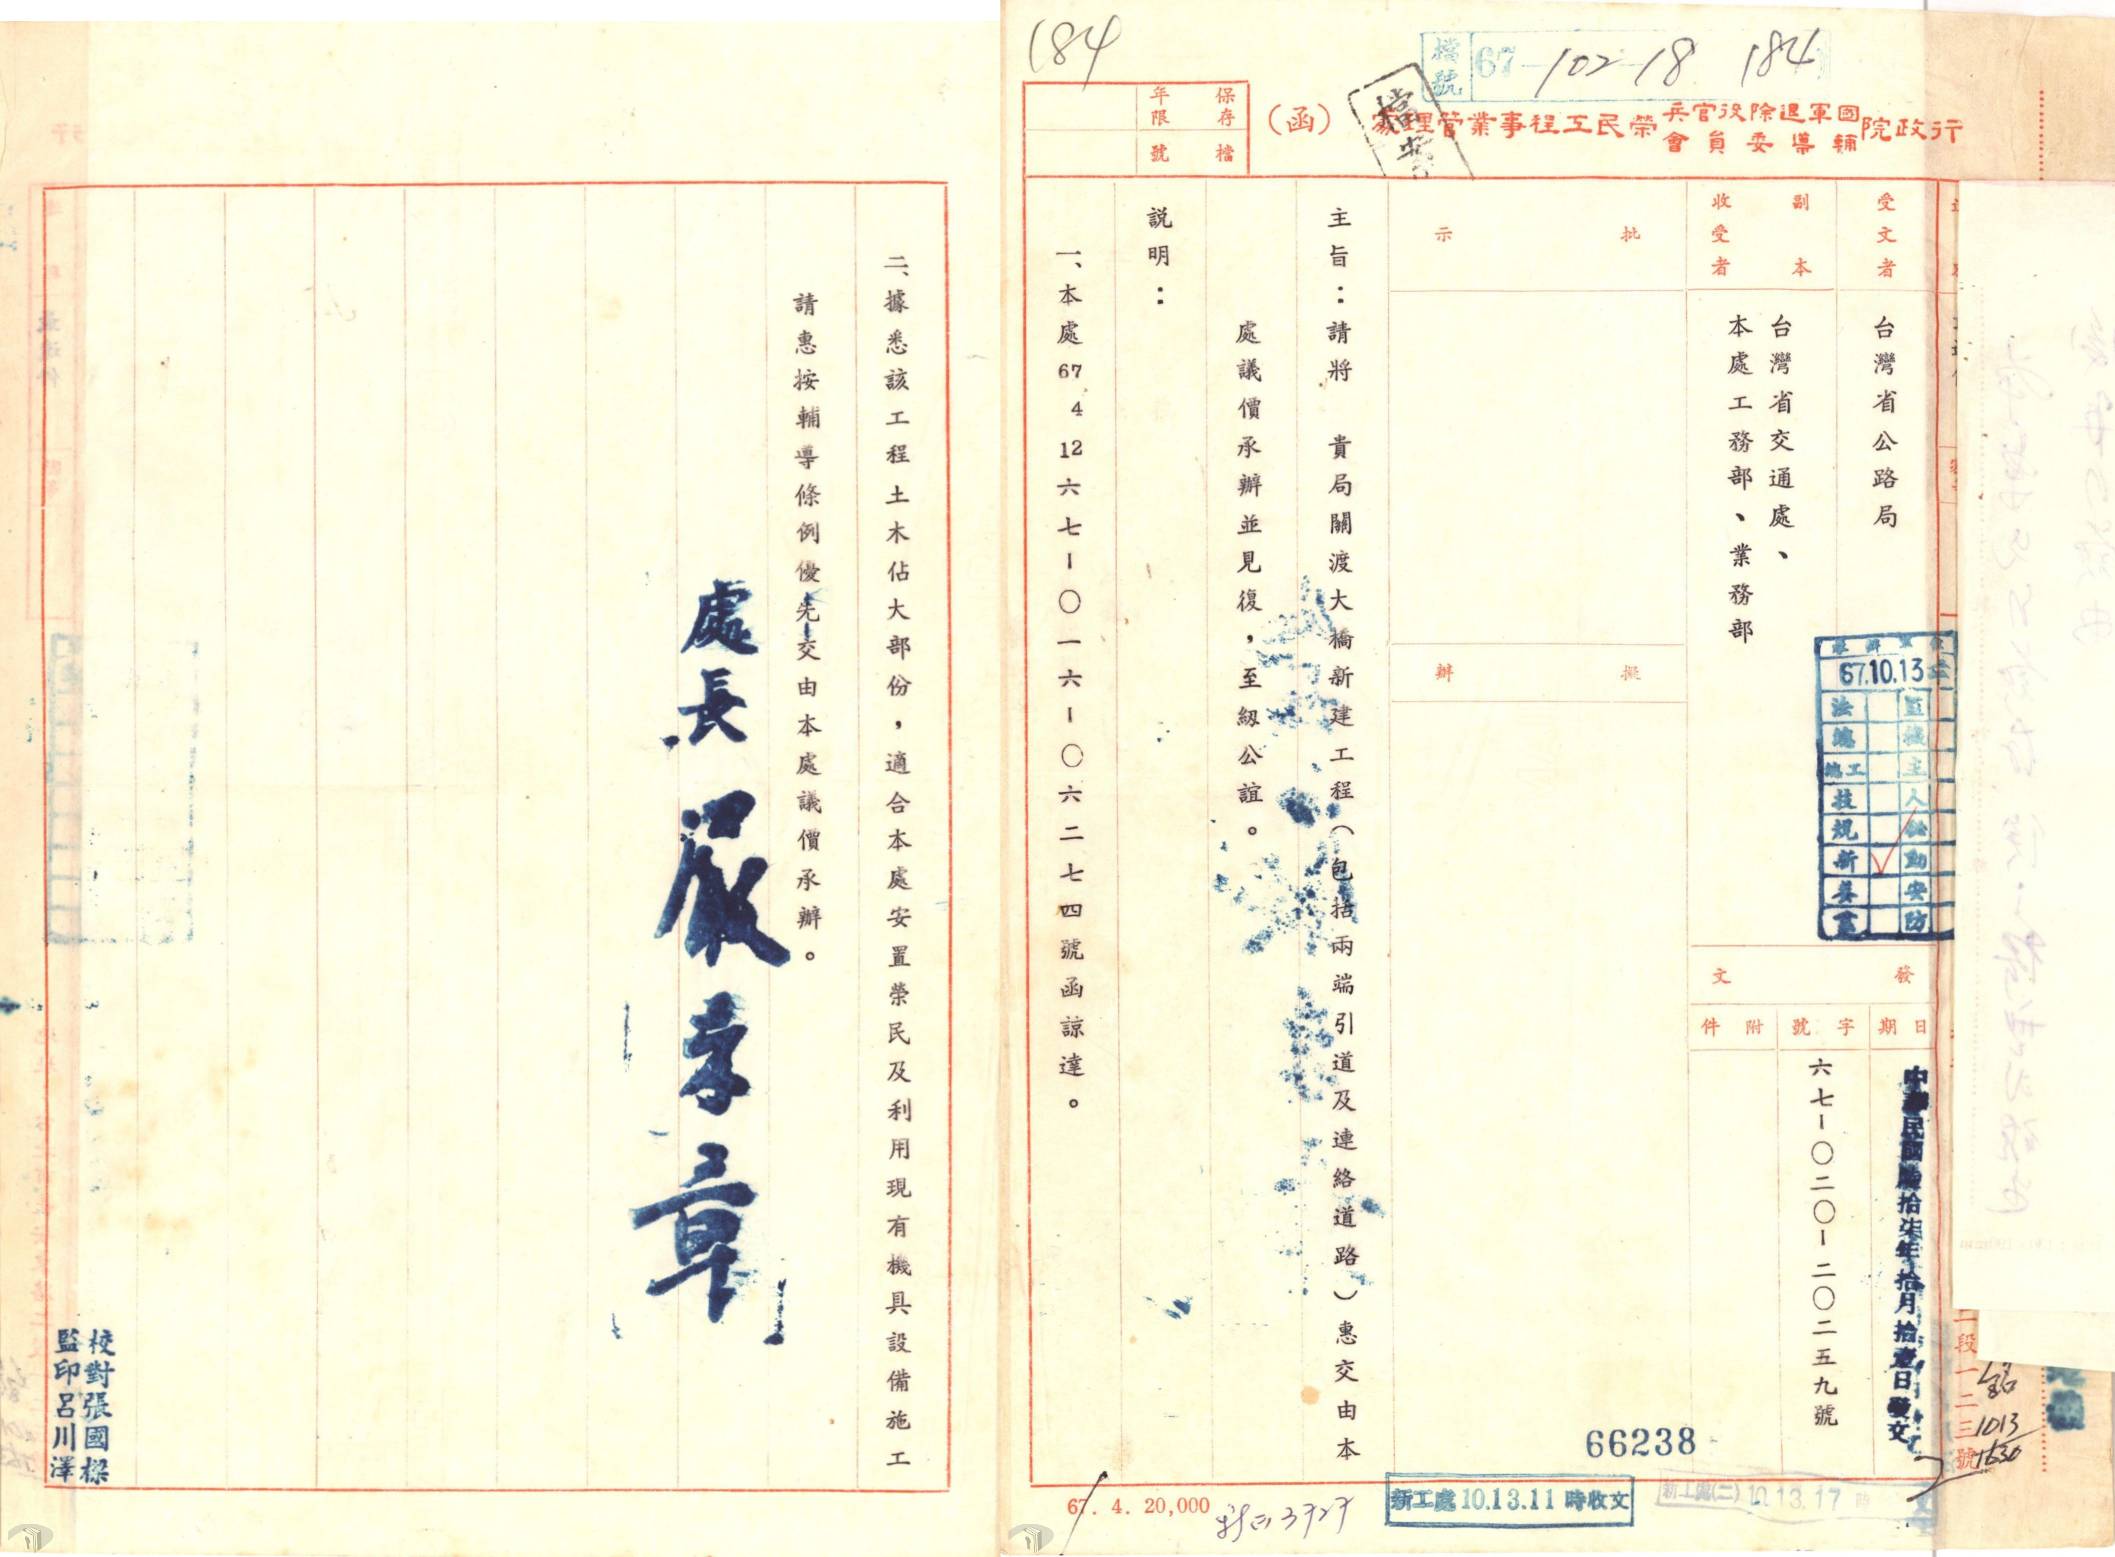 184
檔號 67-102-18 184
行政院國軍退除役官兵輔導委員會榮民工程事業管理處(函)
檔案
保存年限
檔號
受文者
台灣省公路局
副本收受者
台灣省交通處、
本處工務部、業務部
批示
擬辦
發文
日期
中華民國陸拾柒年拾月拾壹日發文
字號
六七-〇二〇-二〇二五九號
附件
67.10.13
主旨：請將　貴局關渡大橋新建工程（包括兩端引道及連絡道路）惠交由本
處議價承辦並見復，至紉公誼。
説明：
一、本處67 4 12六七-〇一六-〇六二七四號函諒達。
二、據悉該工程土木佔大部份，適合本處安置榮民及利用現有機具設備施工
請惠按輔導條例優先交由本處議價承辦。
處長嚴孝章
校對張國樑
監印呂川澤
66238
新工處10.13.11時收文
新工處(二)10.13.17時
67. 4. 20,000
段一二三號
1013
1630